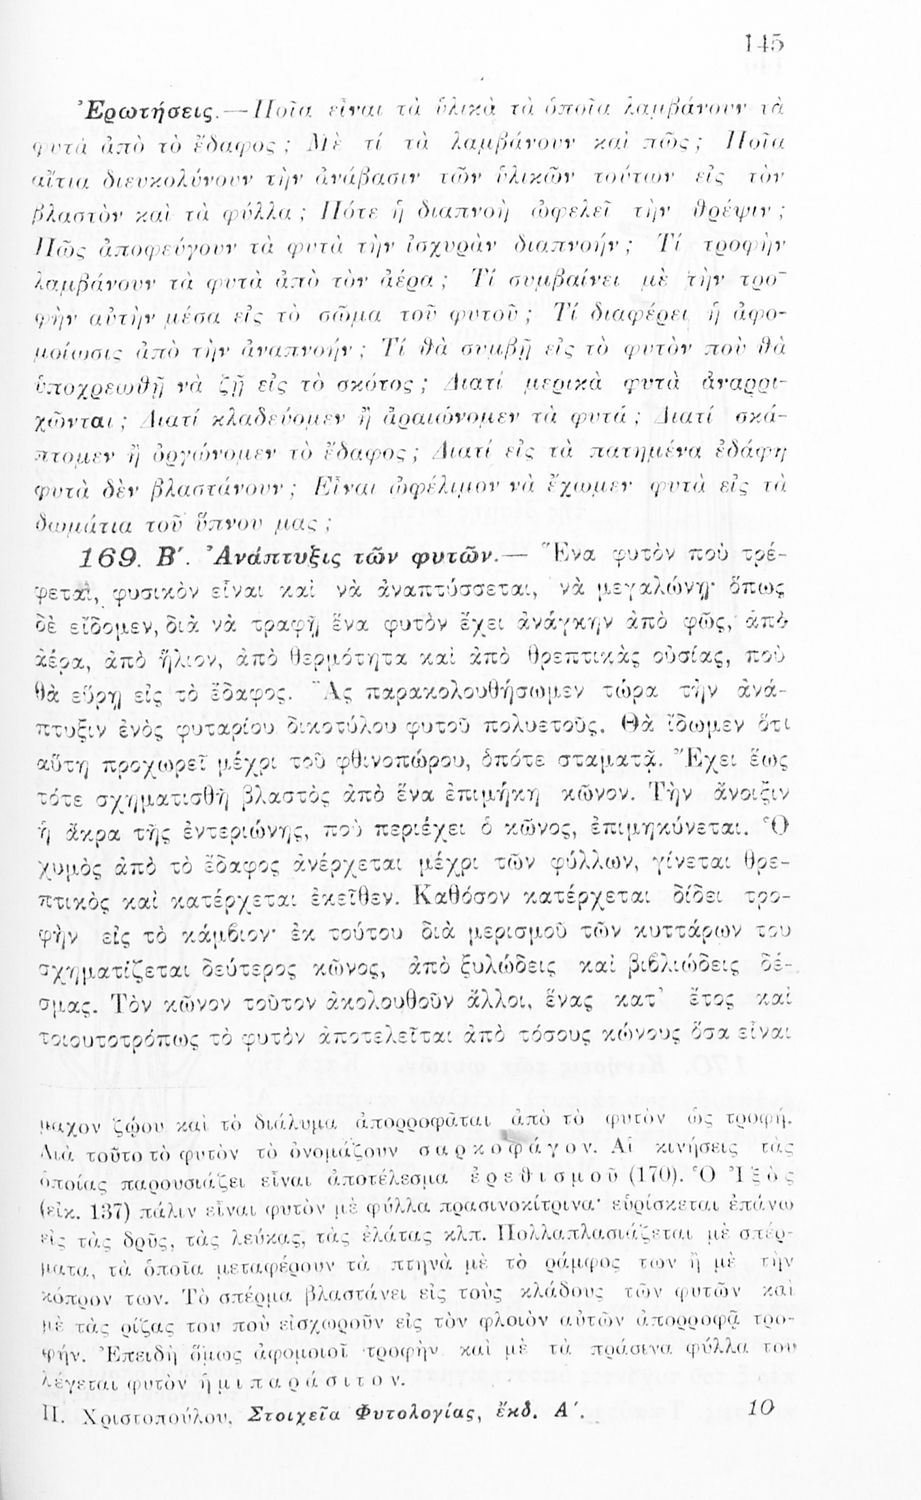 145
Ἐρωτήσεις.—Ποῖα εἶναι τὰ ὑλικὰ τὰ ὁποῖα λαμβάνουν τὰ
φυτὰ ἀπὸ τὸ ἔδαφος ; Μὲ τί τὰ λαμβάνουν καὶ πῶς ; Ποῖα
αἴτια διευκολύνουν τὴν ἀνάβασιν τῶν ὑλικῶν τούτων εἰς τὸν
βλαστὸν καὶ τὰ φύλλα ; Πότε ἡ διαπνοὴ ὠφελεῖ τὴν θρέψιν ;
Πῶς ἀποφεύγουν τὰ φυτὰ τὴν ἰσχυρὰν διαπνοήν ; Τί τροφὴν
λαμβάνουν τὰ φυτὰ ἀπὸ τὸν ἀέρα ; Τί συμβαίνει μὲ τὴν τρο-
φὴν αὐτὴν μέσα εἰς τὸ σῶμα τοῦ φυτοῦ ; Τί διαφέρει ἡ ἀφο-
μοίωσις ἀπὸ τὴν ἀναπνοήν ; Τί θὰ συμβῇ εἰς τὸ φυτὸν ποὺ θὰ
ὑποχρεωθῇ νὰ ζῇ εἰς τὸ σκότος ; Διατί μερικὰ φυτὰ ἀναρρι-
χῶνται ; Διατί κλαδεύομεν ἢ ἀραιώνομεν τὰ φυτά ; Διατί σκά-
πτομεν ἢ ὀργώνομεν τὸ ἔδαφος ; Διατί εἰς τὰ πατημένα ἐδάφη
φυτὰ δὲν βλαστάνουν ; Εἶναι ὠφέλιμον νὰ ἔχωμεν φυτὰ εἰς τὰ
δωμάτια τοῦ ὕπνου μας ;
169. Β′. Ἀνάπτυξις τῶν φυτῶν.— Ἕνα φυτὸν ποὺ τρέ-
φεται, φυσικὸν εἶναι καὶ νὰ ἀναπτύσσεται, νὰ μεγαλώνῃ· ὅπως
δὲ εἴδομεν, διὰ νὰ τραφῇ ἕνα φυτὸν ἔχει ἀνάγκην ἀπὸ φῶς, ἀπὸ
ἀέρα, ἀπὸ ἥλιον, ἀπὸ θερμότητα καὶ ἀπὸ θρεπτικὰς οὐσίας, ποὺ
θὰ εὕρῃ εἰς τὸ ἔδαφος. Ἂς παρακολουθήσωμεν τώρα τὴν ἀνά-
πτυξιν ἑνὸς φυταρίου δικοτύλου φυτοῦ πολυετοῦς. Θὰ ἴδωμεν ὅτι
αὕτη προχωρεῖ μέχρι τοῦ φθινοπώρου, ὁπότε σταματᾷ. Ἔχει ἕως
τότε σχηματισθῆ βλαστὸς ἀπὸ ἕνα ἐπιμήκη κῶνον. Τὴν ἄνοιξιν
ἡ ἄκρα τῆς ἐντεριώνης, ποὺ περιέχει ὁ κῶνος, ἐπιμηκύνεται. Ὁ
χυμὸς ἀπὸ τὸ ἔδαφος ἀνέρχεται μέχρι τῶν φύλλων, γίνεται θρε-
πτικὸς καὶ κατέρχεται ἐκεῖθεν. Καθόσον κατέρχεται δίδει τρο-
φὴν εἰς τὸ κάμβιον· ἐκ τούτου διὰ μερισμοῦ τῶν κυττάρων του
σχηματίζεται δεύτερος κῶνος, ἀπὸ ξυλώδεις καὶ βιβλιώδεις δέ-
σμας. Τὸν κῶνον τοῦτον ἀκολουθοῦν ἄλλοι, ἕνας κατ᾿ ἔτος καὶ
τοιουτοτρόπως τὸ φυτὸν ἀποτελεῖται ἀπὸ τόσους κώνους ὅσα εἶναι
μαχον ζῴου καὶ τὸ διάλυμα ἀπορροφᾶται ἀπὸ τὸ φυτὸν ὡς τροφή.
Διὰ τοῦτο τὸ φυτὸν τὸ ὀνομάζουν σ α ρ κ ο φ ά γ ο ν. Αἱ κινήσεις τὰς
ὁποίας παρουσιάζει εἶναι ἀποτέλεσμα ἐ ρ ε θ ι σ μ ο ῦ (170). Ὁ Ἰ ξ ὸ ς
(εἰκ. 137) πάλιν εἶναι φυτὸν μὲ φύλλα πρασινοκίτρινα· εὑρίσκεται ἐπάνω
εἰς τὰς δρῦς, τὰς λεύκας, τὰς ἐλάτας κλπ. Πολλαπλασιάζεται μὲ σπέρ-
ματα, τὰ ὁποῖα μεταφέρουν τὰ πτηνὰ μὲ τὸ ράμφος των ἢ μὲ τὴν
κόπρον των. Τὸ σπέρμα βλαστάνει εἰς τοὺς κλάδους τῶν φυτῶν καὶ
μὲ τὰς ρίζας του ποὺ εἰσχωροῦν εἰς τὸν φλοιὸν αὐτῶν ἀπορροφᾷ τρο-
φήν. Ἐπειδὴ ὅμως ἀφομοιοῖ τροφὴν καὶ μὲ τὰ πράσινα φύλλα του
λέγεται φυτὸν ἡ μ ι π α ρ ά σ ι τ ο ν.
Π. Χριστοπούλου, Στοιχεῖα Φυτολογίας, ἔκδ. Α′. 10